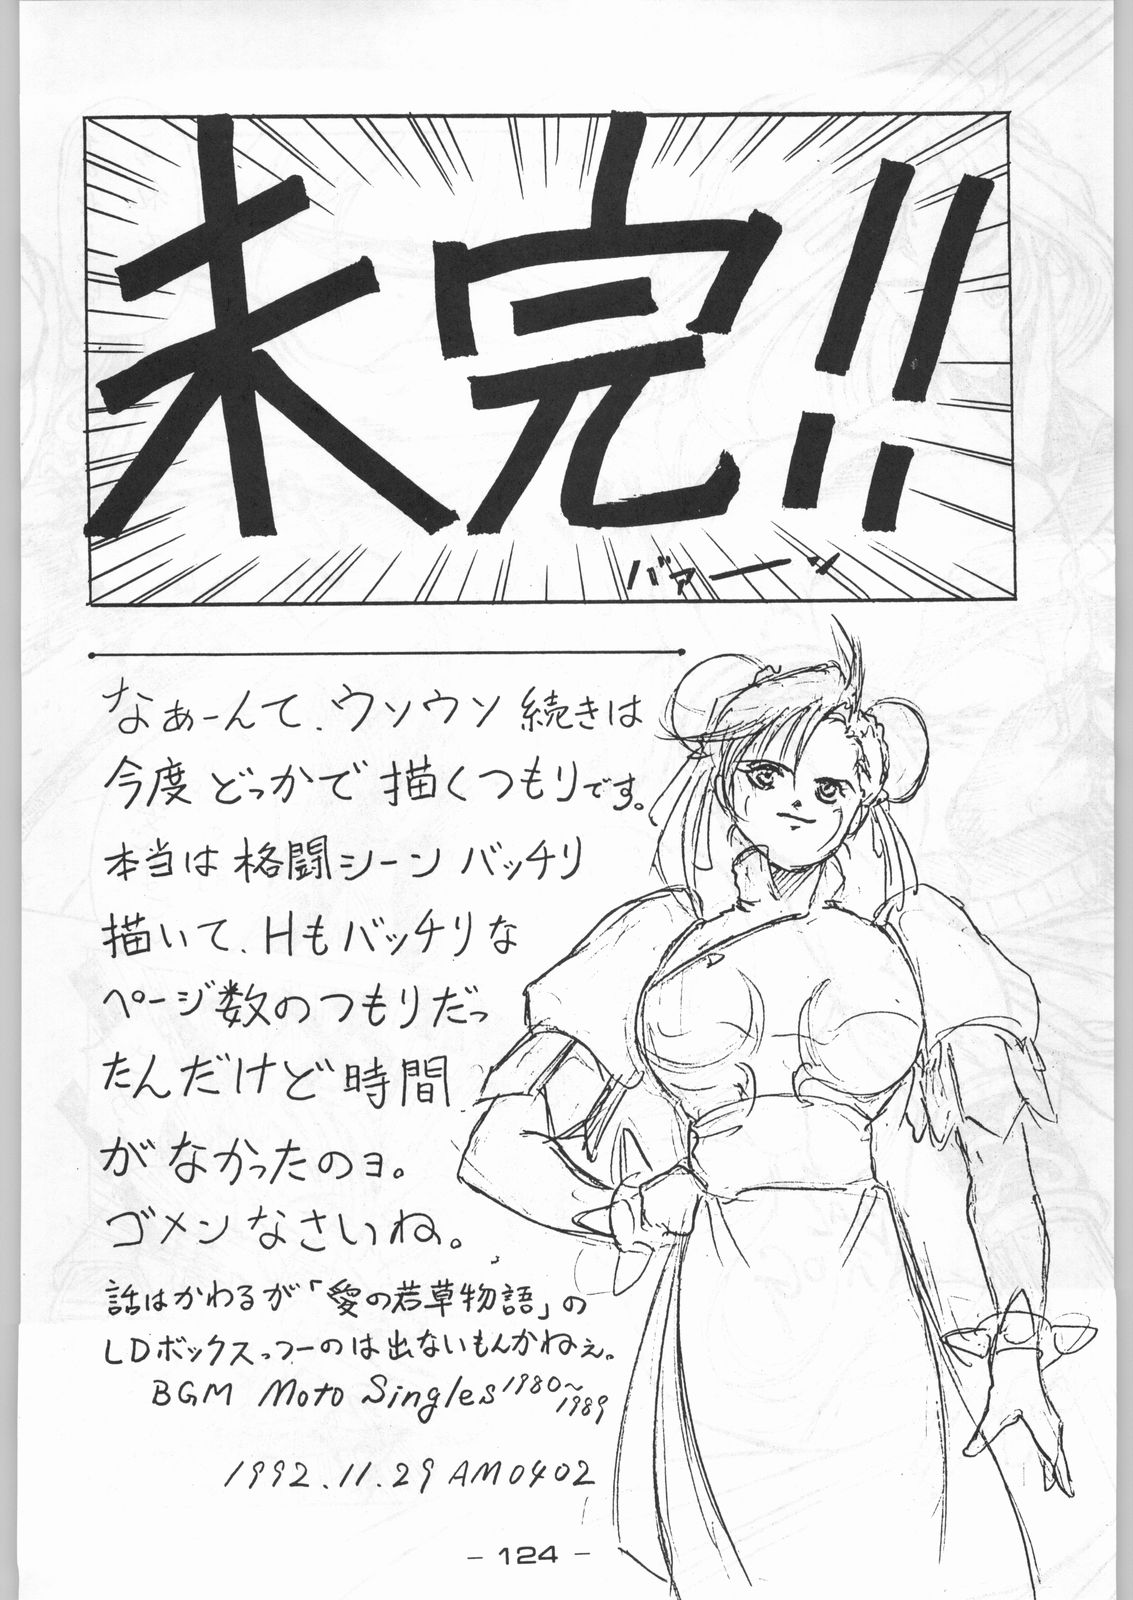 未完!!
バァーン
なぁーんて、ウソウソ 続きは
今度 どっかで 描くつもりです。
本当は 格闘シーン バッチリ
描いて、Hもバッチリな
ページ数のつもりだっ
たんだけど 時間
がなかったのョ。
ゴメンなさいね。
話はかわるが「愛の若草物語」の
LDボックスっつーのは出ないもんかねぇ。
BGM Moto Singles 1980～
1989
1992.11.29 AM0402
- 124 -